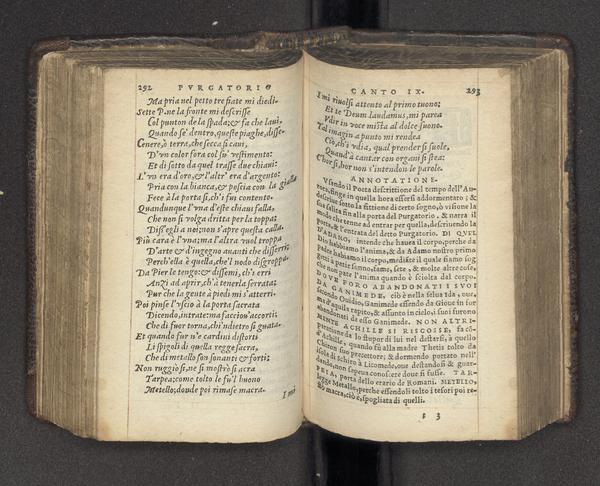 292 PVRGATORIO
Ma pria nel petto tre fiate mi diedi.
Sette P. ne la fronte mi descrisse
Col punton de la spada; & fa che laui,
Quando se' dentro, queste piaghe, disse.
Cenere, ò terra, che secca si caui,
D'vn color fora col suo vestimento:
Et di sotto da quel trasse due chiaui:
L'vn era d'oro, & l'altr' era d'argento:
Pria con la bianca, & poscia con la gialla
Fece à la porta si, ch'i fui contento.
Quandunque l'vna d'este chiaui falla,
Che non si volga dritta per la toppa;
Diss'egli a noi; non s'apre questa calla.
Più cara è l'vna; ma l'altra vuol troppa
D'arte & d'ingegno auanti che disserri;
Perch'ella è quella, che'l nodo disgroppa.
Da Pier le tengo: & dissemi, ch'i erri
Anzi ad aprir, ch'à tenerla serrata;
Pur che la gente à piedi mi s'atterri.
Poi pinse l'vscio à la porta sacrata
Dicendo, intrate: ma facciou'accorti;
Che di fuor torna, chi'ndietro si guata.
Et quando fur ne' cardini distorti
Li spigoli di quella regge sacra,
Che di metallo son sonanti & forti;
Non ruggio si, ne si mostrò si acra
Tarpea; come tolto le fu'l buono
Metello; donde poi rimase macra.
I mi
CANTO IX. 293
I mi riuolsi attento al primo tuono;
Et te Deum laudamus, mi parea
Vdir in voce mista al dolce suono.
Tal imagin a punto mi rendea
Ciò, ch'i vdia, qual prender si suole,
Quand'a cantar con organi si stea:
C'hor si, hor non s'intendon le parole.
ANNOTATIONE.
Vsendo il Poeta descrittione del tempo dell'Au-
rora, finge in quella hora essersi addormentato; &
descriue sotto la fittione di certo sogno, ò visione la
sua salita fin alla porta del Purgatorio, & narra il
modo che tenne ad entrar per quella, descriuendo la
porta, & l'entrata del detto Purgatorio. DI QVEL
D'ADAMO, intende che hauea il corpo, perche da
Dio habbiamo l'anima, & da Adamo nostro primo
Padre habbiamo il corpo, mediate il quale siamo sog
getti à patir sonno, fame, sete, & molte altre cose,
che non pate l'anima quando è sciolta del corpo.
DOVE FORO ABANDONATI I SVOI
DA GANIMEDE, ciò è nella selua Ida, oue,
secondo Ouidio, Ganimede essendo da Gioue in for
ma d'aquila rapito, & assunto in cielo, i suoi furono
abandonati da esso Ganimede. NON ALTRI-
MENTE ACHILLE SI RISCOSSE, fa cō-
peratione da lo stupor di lui nel destarsi, à quello
d'Achille, quando fù alla madre Thetis tolto da
Chiron suo precettore; & dormendo portato nell'
isola di Schiro à Licomede, oue destandosi & guar-
dando, non sapeua conoscere doue si fusse. TAR-
PEIA, porta dello erario de Romani. METELLO,
legge Metello, perche essendoli tolto i tesori poi re-
stò macra, ciò è, spogliata di quelli.
t 3